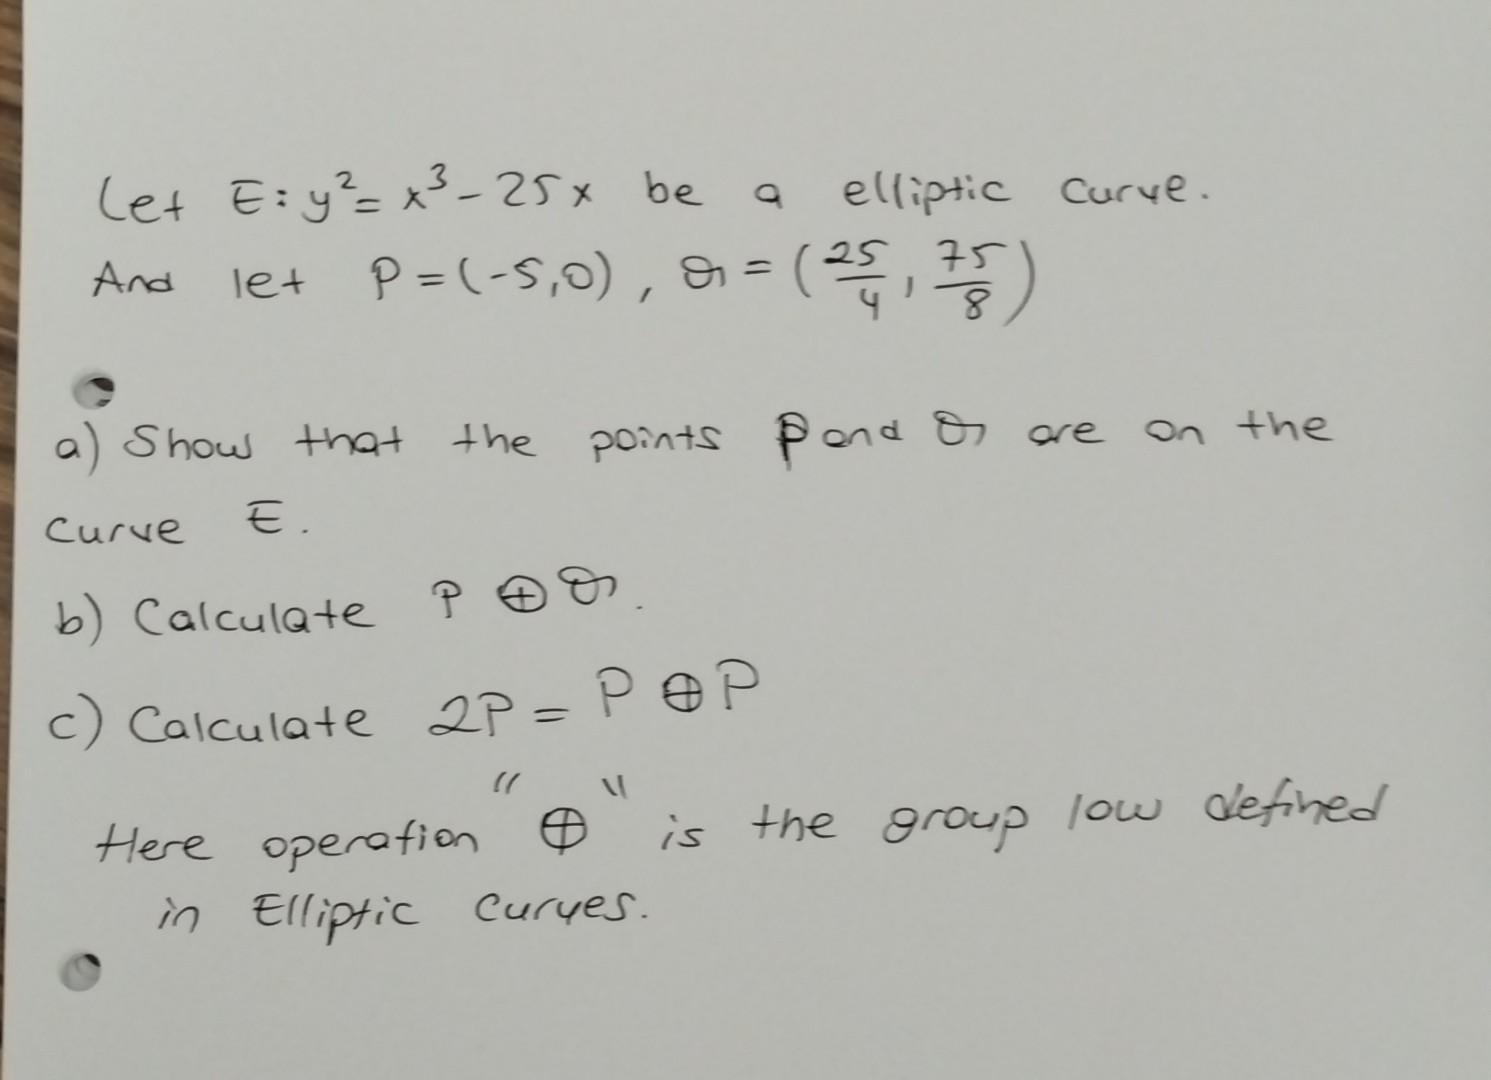 Let E: y² = x³ - 25x be a elliptic curve.
And let P = (-5,0), Q = (25/4, 75/8)
a) Show that the points P and Q are on the
curve E.
b) Calculate P ⊕ Q.
c) Calculate 2P = P ⊕ P
Here operation "⊕" is the group low defined
in Elliptic curves.